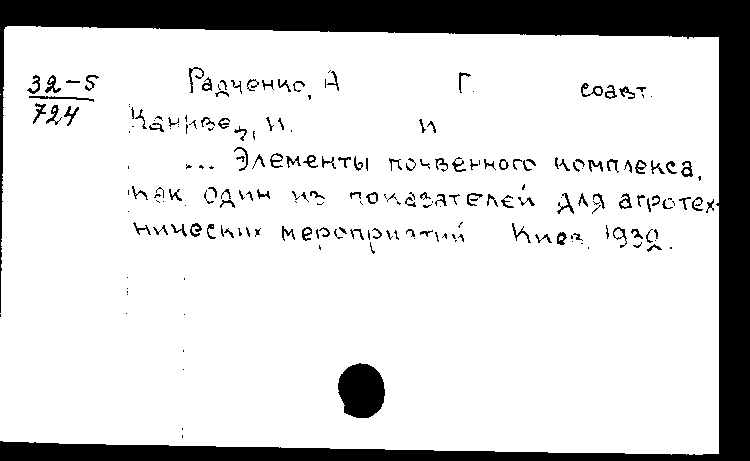 32-5
724
Радченко, А Г. соавт.
Канивец, И. И
... Элементы почвенного комплекса,
как один из показателей для агротех-
нических мероприятий Киев, 1932.